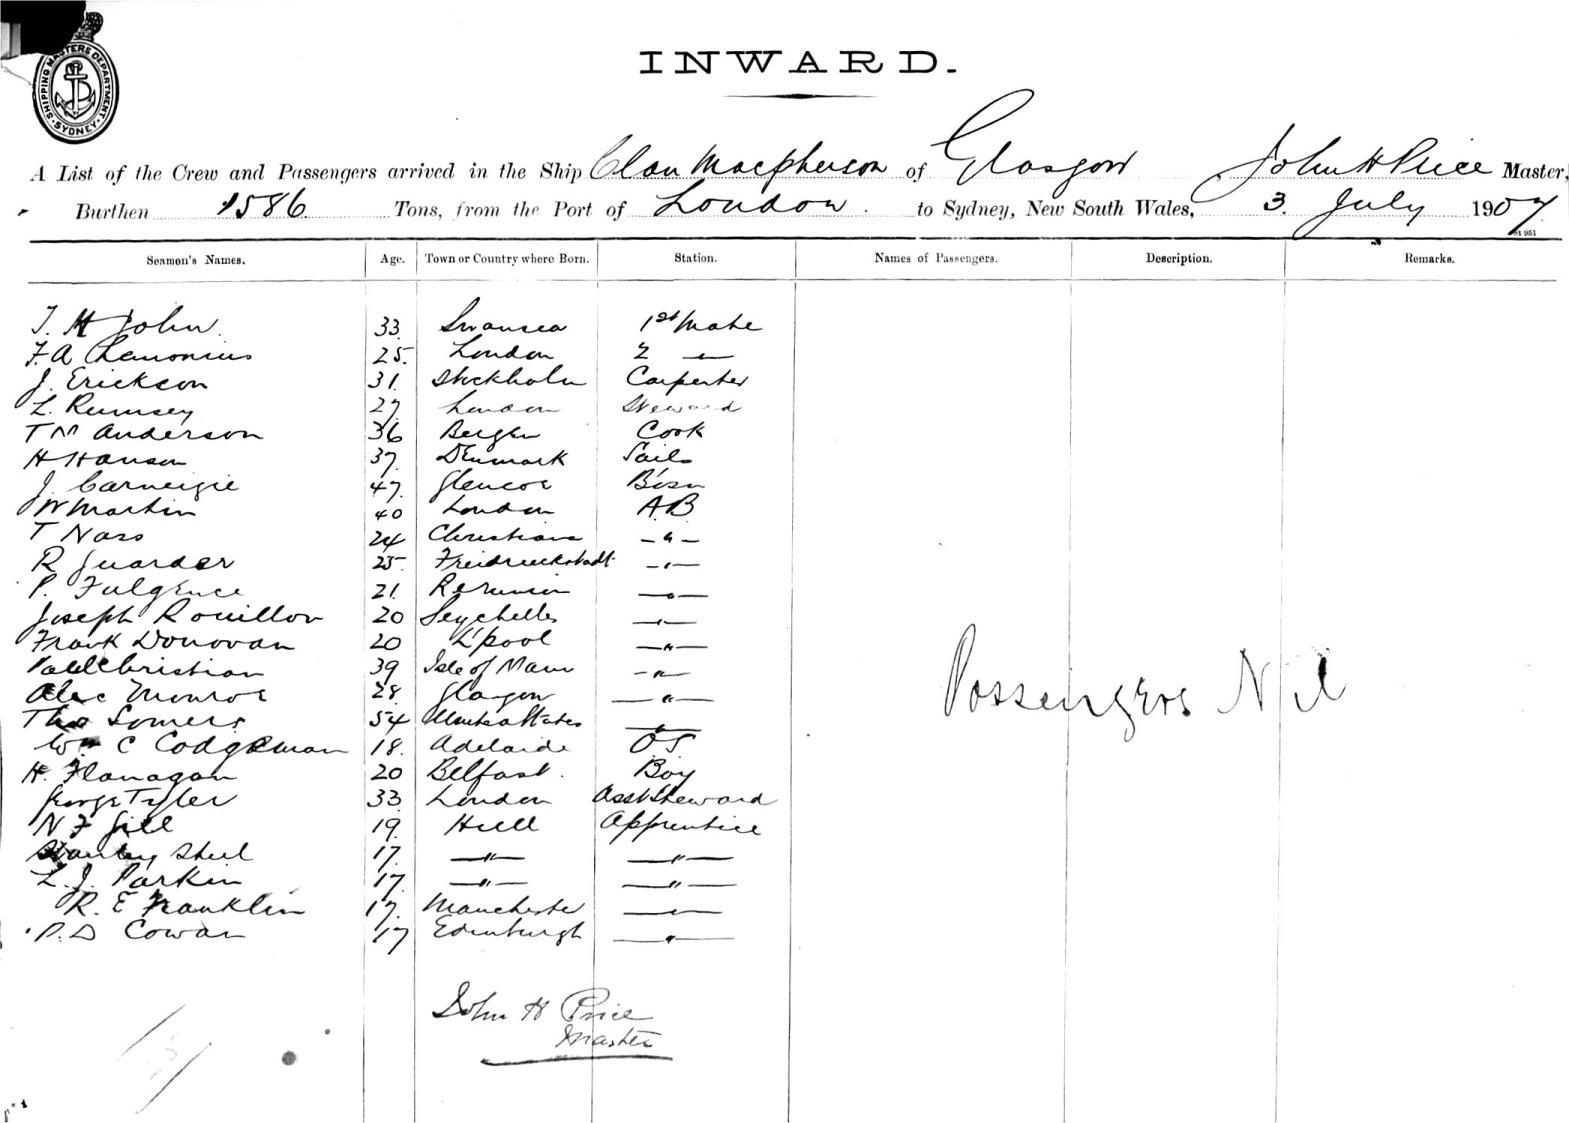 SHIPPING MASTERS DEPARTMENT. SYDNEY.
INWARD.
A List of the Crew and Passengers arrived in the Ship Clan Macpherson of Glasgow John H Price Master,
Burthen 1586 Tons, from the Port of London to Sydney, New South Wales, 3. July 1907
St 951
Seamen's Names. Age. Town or Country where Born. Station. Names of Passengers. Description. Remarks.
T. H John. 33 Swansea 1st Mate
F. A Chemonius 25. London 2 "
J. Erickson 31. Stockholm Carpenter
L. Rumsey 27. London Steward
T M Anderson 36 Bergen Cook
H Hanson 37. Denmark Sails
J. Carneigie 47. Glencoe Bosn
W Martin 40 London A.B
T Nass 24 Christiana "
R Guarder 25 Freidrieckstadt "
P. Fulgence 21. Reunion "
Joseph Rouillon 20 Seychelles "
Frank Donovan 20 L'pool "
Christian 39 Isle of Man "
Alec Monroe 28. Glasgow "
Thos Somers 54 United States
Wm C Codgeman 18. Adelaide OS
H. Flanagan 20 Belfast. Boy
George Tyler 33 London Asst Steward
N F Gill 19. Hull Apprentice
Stanley Shiel 17. " "
L. J. Parkin 17. " "
R. E Franklin 17. Manchester "
P. D Cowan 17 Edinburgh "
Passengers Nil
John H Price
Master